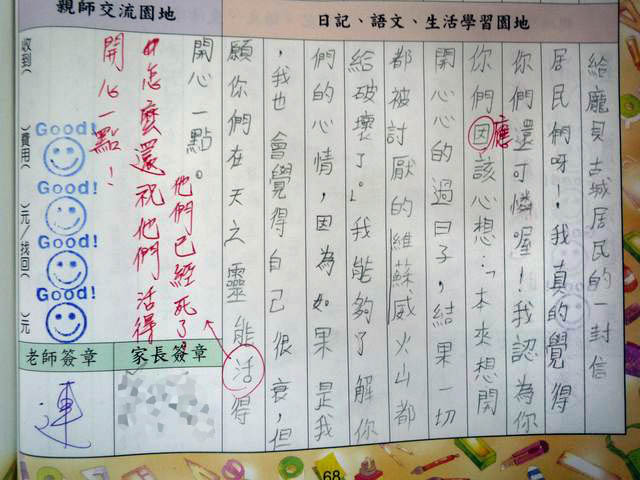 日記、語文、生活學習園地
給龐貝古城居民的一封信
居民們呀!我真的覺得
你們還可憐喔!我認為你
你們因該心想:「本來想開
應
開心心的過日子,結果一切
都被討厭的維蘇威火山都
給破壞了。」我能夠了解你
們的心情,因為如果是我
,我也會覺得自己很衰,但
願你們在天之靈能活得
開心一點。
他們已經死了,
怎麼還祝他們活得
開心一點!
親師交流園地
收到( )費用( )元/找回( )元
Good!
Good!
Good!
Good!
家長簽章
老師簽章
連
68